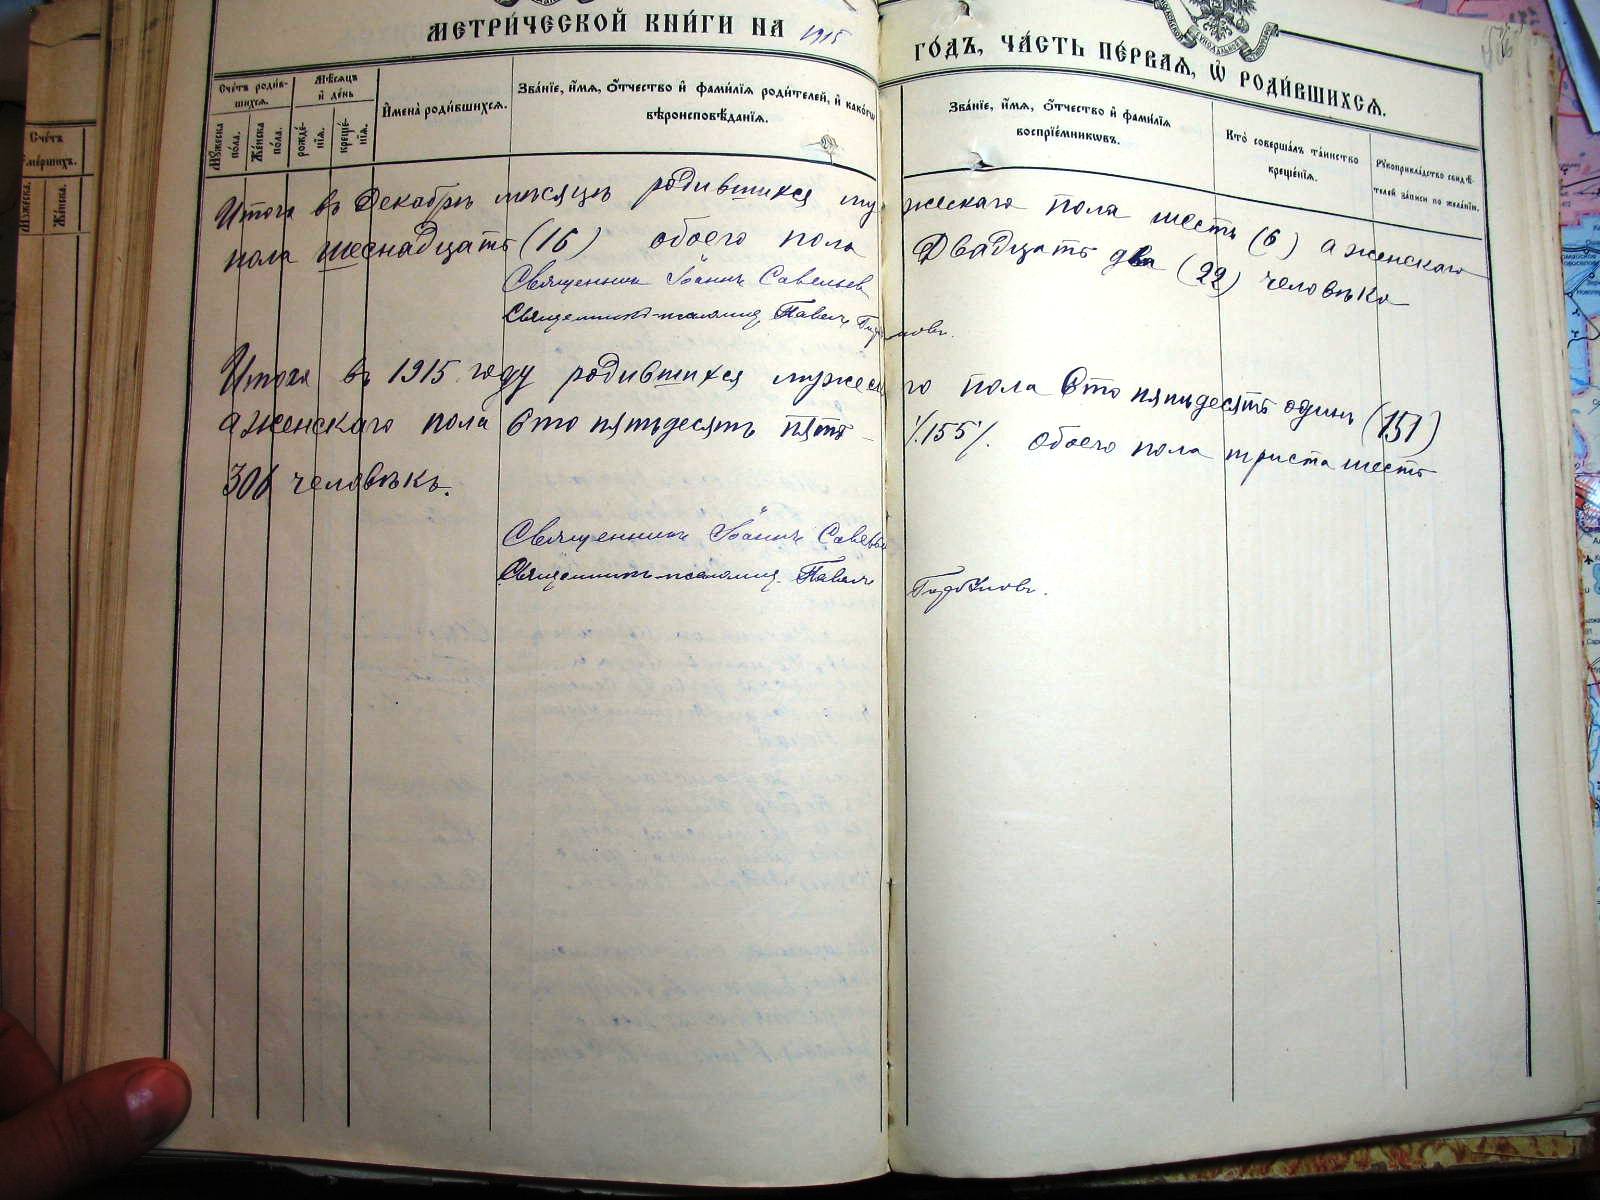 МЕТРИ́ЧЕСКОЙ КНИ́ГИ НА 1915
ГО́ДЪ, ЧА́СТЬ ПЕ́РВАЯ, Ѡ҆ РОДИ́ВШИХСЯ.
Сче́тъ роди́в-
шихся.
Мѣ́сяцъ
и҆ де́нь
Му́жеска
по́ла.
Же́нска
по́ла.
рожде́-
нїя.
креще́-
нїя.
И҆мена̀ роди́вшихся.
Зва́нїе, и҆́мя, ѻ҆́тчество и҆ фами́лїя роди́телей, и҆ како́гѡ
вѣроисповѣ́данїя.
Зва́нїе, и҆́мя, ѻ҆́тчество и҆ фами́лїя
воспрїе́мникѡвъ.
Кто̀ соверша́лъ та́инство
креще́нїя.
Рꙋкоприкла́дство свидѣ́-
телей за́писи по жела́нїю.
Сче́тъ
уме́ршихъ.
Му́жеска.
Же́нска.
Итого въ Декабрѣ мѣсяцѣ родившихся мужескаго пола шесть (6) а женскаго
пола шеснадцать (16) обоего пола Двадцать два (22) человѣка
Священникъ Іоаннъ Савельев
Священникъ-псаломщ. Павелъ
Итого въ 1915 году родившихся мужеского пола Сто пятьдесятъ одинъ (151)
а женскаго пола Сто пятьдесятъ пять - /.155/. обоего пола триста шесть
306 человѣкъ.
Священникъ Іоаннъ Савельев
Священникъ-псаломщ. Павелъ